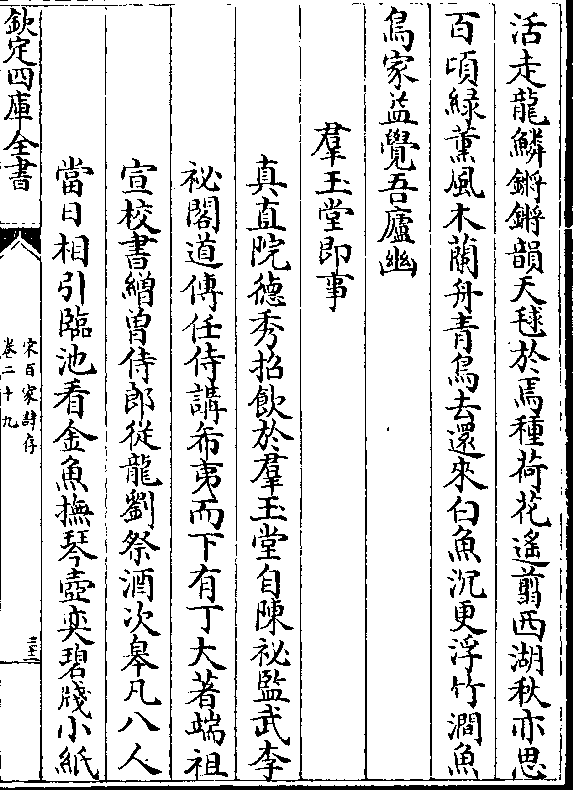 活走龍鱗鏘鏘韻天毬於焉種荷花遙翦西湖秋亦思
百頃緑薰風木蘭舟青鳥去還來白魚沉更浮竹澗魚
鳥家益覺吾廬幽
羣玉堂即事
真直院德秀招飲於羣玉堂自陳祕監武李
祕閣道傳任侍講希夷而下有丁大著端祖
宣校書繒曾侍郎從龍劉祭酒次皋凡八人
當日相引臨池看金魚撫琴壺奕碧牋小紙
欽定四庫全書
宋百家詩存
卷二十九
三十二